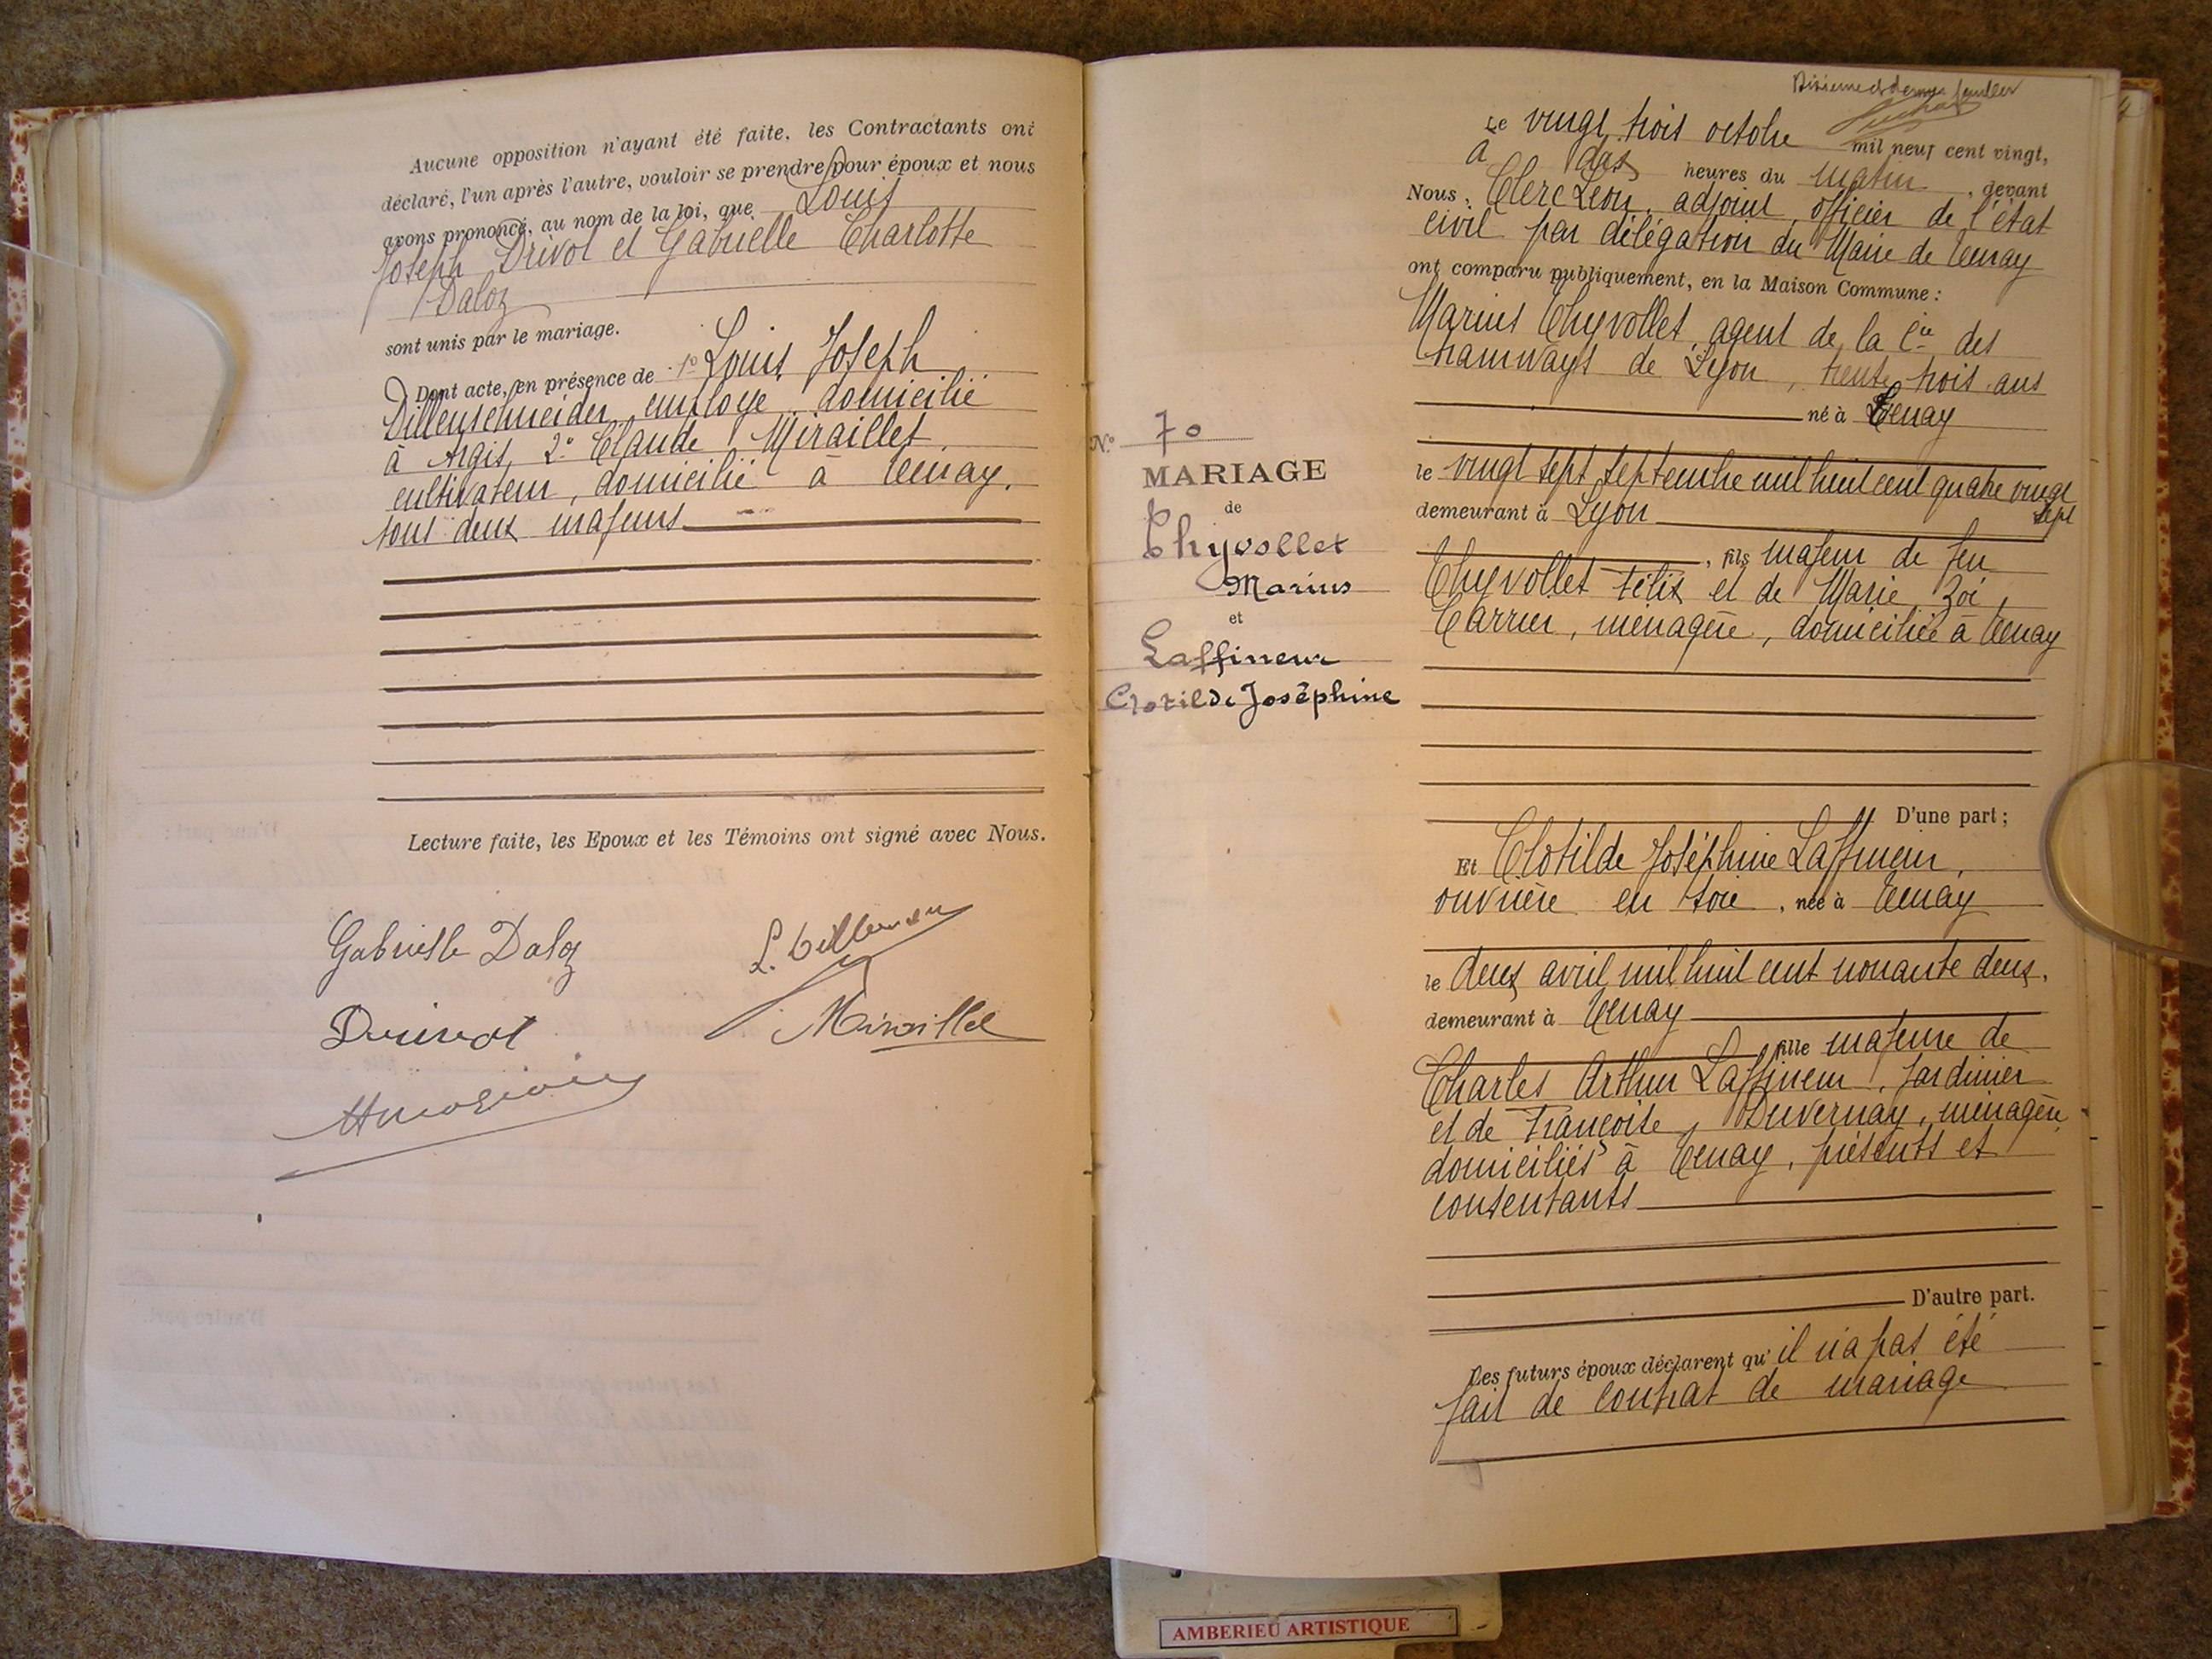 Aucune opposition n'ayant été faite, les Contractants ont
déclaré, l'un après l'autre, vouloir se prendre pour époux et nous
avons prononcé, au nom de la loi, que Louis
Joseph Drivot et Gabrielle Charlotte
Daloz
sont unis par le mariage.
Dont acte, en présence de 1º Louis Joseph
Dillenschneider employé domicilié
à Argis, 2º Claude Miraillet
cultivateur, domicilié à Tenay.
tous deux majeurs
Lecture faite, les Epoux et les Témoins ont signé avec Nous.
Gabrielle Daloz
Miraillet
Nº 70
MARIAGE
de
Chyvollet
Marius
et
Laffineur
Clotilde Joséphine
Le vingt trois octobre mil neuf cent vingt,
à dix heures du matin, devant
Nous, Clerc Léon, adjoint, officier de l'état
civil par délégation du Maire de Tenay
ont comparu publiquement, en la Maison Commune :
Marius Chyvollet, agent de la Cie des
tramways de Lyon, trente trois ans
né à Tenay
le vingt sept septembre mil huit cent quatre vingt
sept
demeurant à Lyon
, fils majeur de feu
Chyvollet Félix et de Marie Zoé
Carrier, ménagère, domiciliée à Tenay
D'une part ;
Et Clotilde Joséphine Laffineur,
ouvrière en soie, née à Tenay
le deux avril mil huit cent nonante deux,
demeurant à Tenay
fille majeure de
Charles Arthur Laffineur, jardinier
et de Françoise Duvernay, ménagère
domiciliés à Tenay, présents et
consentants
D'autre part.
Les futurs époux déclarent qu'il n'a pas été
fait de contrat de mariage
AMBERIEU ARTISTIQUE